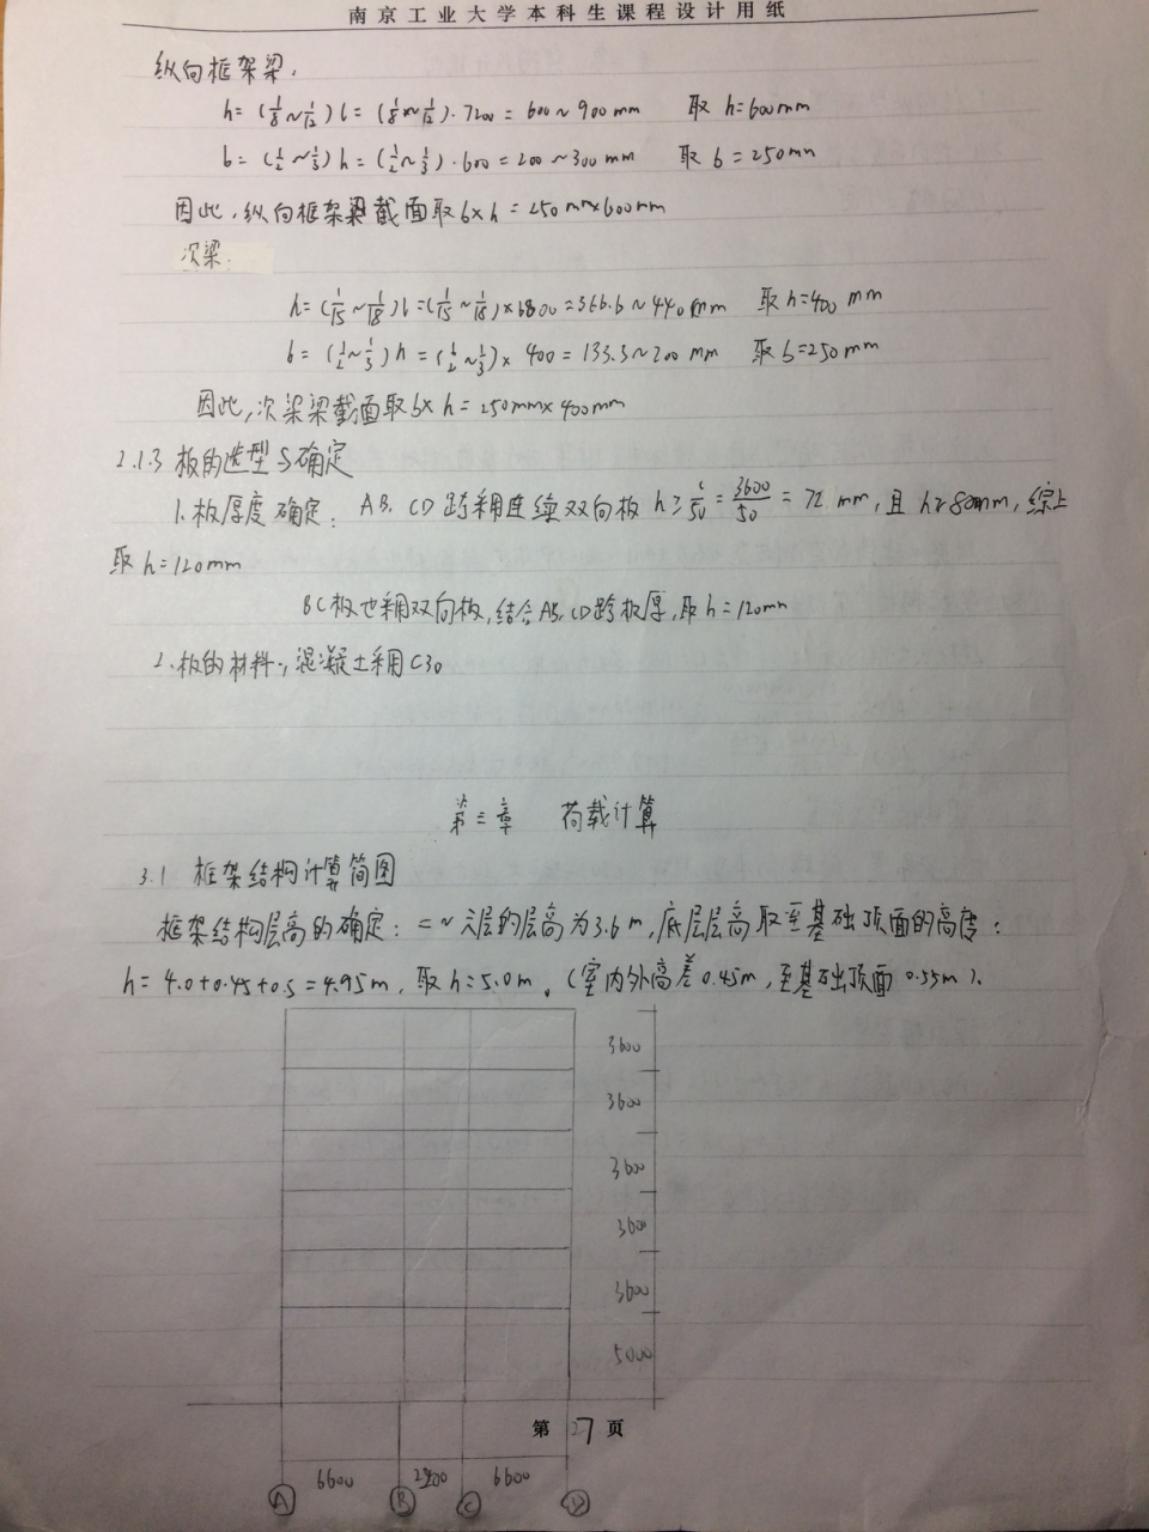 南京工业大学本科生课程设计用纸
纵向框架梁.
h=(1/8~1/12)l=(1/8~1/12)·7200=600~900mm 取 h=600mm
b=(1/2~1/3)h=(1/2~1/3)·600=200~300mm 取 b=250mm
因此,纵向框架梁截面取b×h=250mm×600mm
次梁.
h=(1/15~1/18)l=(1/15~1/18)×6800=366.6~440mm 取h=400mm
b=(1/2~1/3)h=(1/2~1/3)×400=133.3~200mm 取b=250mm
因此,次梁梁截面取b×h=250mm×400mm
2.1.3 板的选型与确定
1.板厚度确定: AB、CD跨采用连续双向板 h≥l/50=3600/50=72mm,且h≥80mm,综上
取h=120mm
BC板也采用双向板,结合AB、CD跨板厚,取h=120mm
2.板的材料:混凝土采用C30
第三章 荷载计算
3.1 框架结构计算简图
框架结构层高的确定:二~六层的层高为3.6m,底层层高取至基础顶面的高度:
h=4.0+0.45+0.5=4.95m,取h=5.0m。(室内外高差0.45m,至基础顶面0.55m).
3600
3600
3600
3600
3600
5000
第27页
6600 2400 6600
A B C D